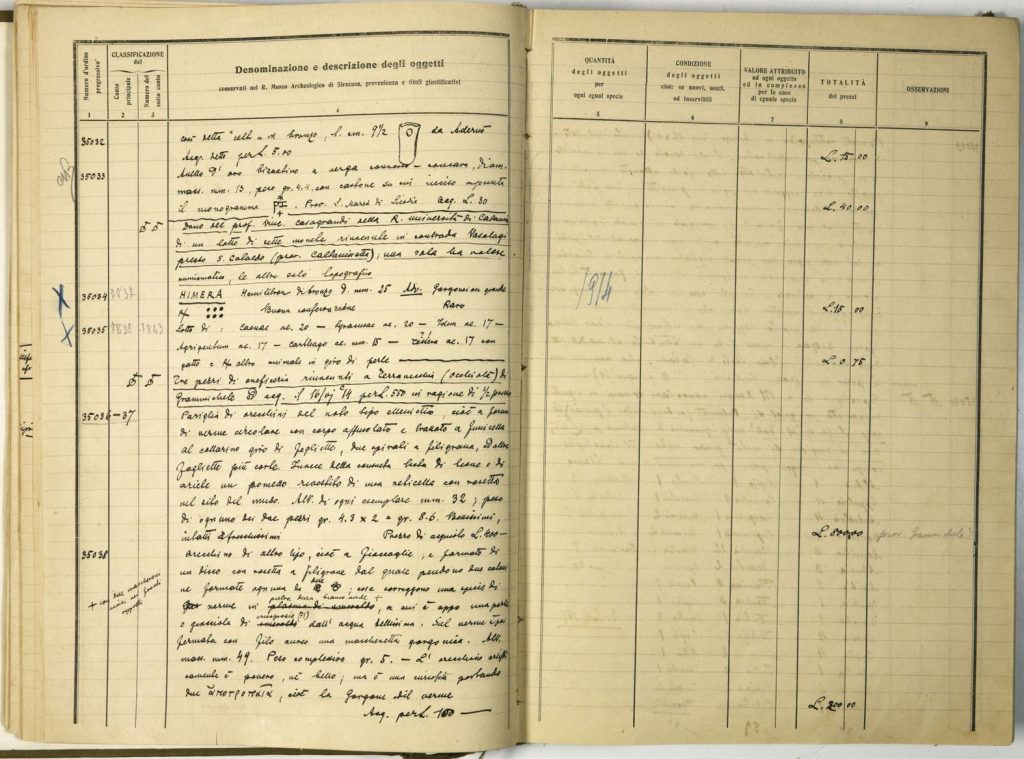 Numero d'ordine progressivo
CLASSIFICAZIONE del
Conto principale
Numero del sotto conto
Denominazione e descrizione degli oggetti
conservati nel R. Museo Archeologico di Siracusa, provenienza e titoli giustificativi
1
2
3
4
35032
così detta "celt" in bronzo, l. cm. 9 1/2 da Adernò
Acq. detto per L. 5.00
35033
Anello d'oro bizantino a verga
mass. mm. 13, peso gr. 4.4. con castone su cui inciso
il monogramma Prov. S. Maria di Licodia acq. L. 30
Dono del prof. Vinc. Casagrandi della R. Università di Catania
di un lotto di sette monete rinvenute in contrada
presso S. Cataldo (prov. Caltanissetta); una sola ha valore
numismatico, le altre solo topografico
35034
7837
HIMERA Hemilitron di bronzo d. mm. 25 Adv. Gorgoneion grande
Buona conservazione Raro
35035
7838
7843
Lotto di: Camar. ae. 20 — Syracusae ae. 20 — Idem ae. 17 —
Agrigentum ae. 17 — Carthago ae. mm. 15 — ae. 17 con
gatto e altro animale in giro di perle
Tre pezzi di oreficeria rinvenuti a Terravecchia (Occhiolà) di
Grammichele acq. il 16/vj °14 per L. 550 in ragione di 1/2 prezzo
35036-37
Pariglia di orecchini del noto tipo ellenistico, cioè a forma
di verme circolare con corpo affusolato e trattato a funicella
al collarino giro di fogliette, due spirali a filigrana, ed altre
fogliette più corte. Invece della consueta testa di leone o di
ariete un pometto rivestito di una reticella con rosetta
nel sito del muso. Alt. di ogni esemplare mm. 32; peso
di ognuno dei due pezzi gr. 4.3 x 2 = gr. 8.6. Benissimi,
intatti e freschissimi Prezzo di acquisto L. 400—
35038
Orecchino di altro tipo, cioè a Gioccaglie; è formato di
un disco con rosetta a filigrana dal quale pendono due catenine
formate ognuna di due ; esse sorreggono una specie di
verme in pietra dura biancastre + plasma di smeraldo, a cui è appo una perla
o gocciola di crisoprasio (?) smeraldo dall'acqua bellissima. Sul verme è poi
fermata con filo aureo una mascheretta gorgonica. Alt.
mass. mm. 49. Peso complessivo gr. 5. — L'orecchino artisti
camente è povero, nè bello; ma è una curiosità portando
due , cioè la Gorgone ed il verme
Acq. per L. 100 —
QUANTITÀ degli oggetti per ogni egual specie
CONDIZIONE degli oggetti cioè: se nuovi, usati, od inservibili
VALORE ATTRIBUITO ad ogni oggetto ed in complesso per le cose di eguale specie
TOTALITÀ dei prezzi
OSSERVAZIONI
5
6
7
8
9
L. 15 00
L. 40 00
1914
L. 15 00
L. 0 75
L. 800 00
prov. Grammichele
L. 200 00